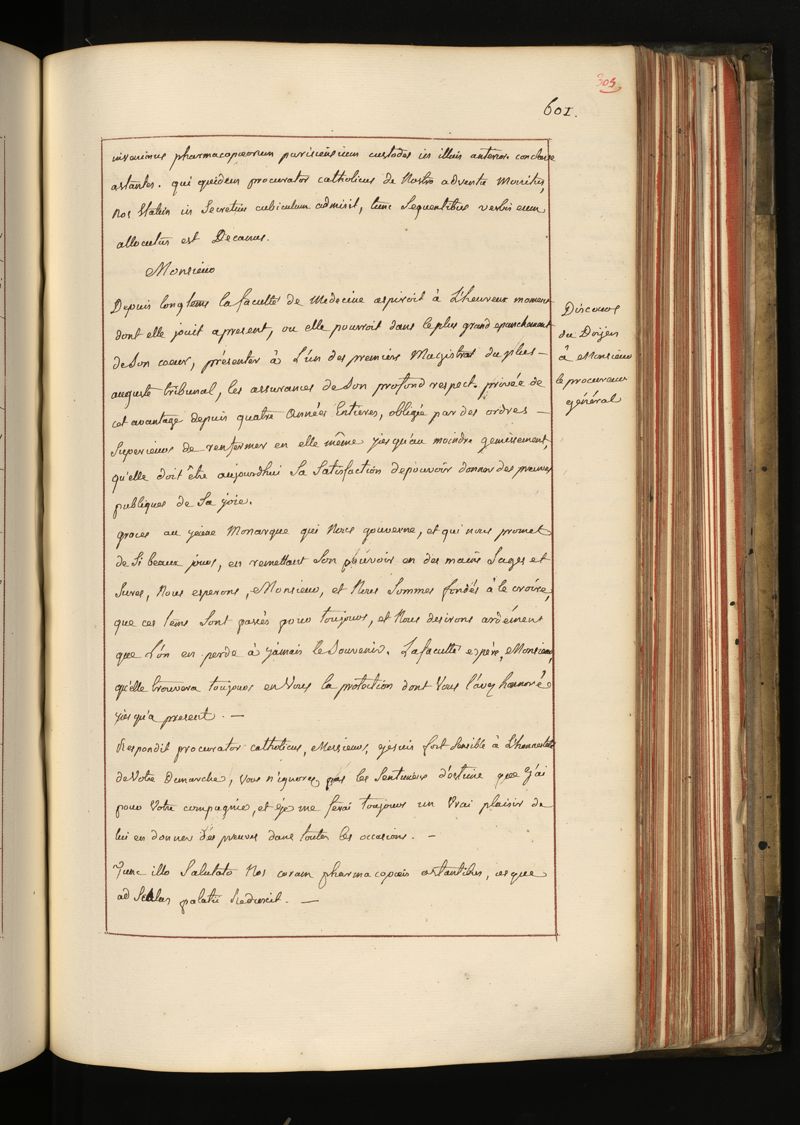 305
601.
invenimus pharmacopœorum parisiensium custodes in illius anteriori conclave
astantes. qui quidem procurator catholicus de Nostro adventu Monitus,
Nos Statim in Secretius cubiculum admisit, tunc Sequentibus verbis eum
allocutus est Decanus.
Monsieur
Depuis longtems la faculté de Medecine aspiroit à L'heureux moment
dont elle jouit apresent, ou elle pourroit dans le plus grand epanchement
de Son coeur, présenter à L'un des premiers Magistrats du plus –
auguste tribunal, les assurances de Son profond respect. privée de
cet avantage depuis quatre Années Entieres, obligée par des ordres –
Superieurs de renfermer en elle même jusqu'au moindre gemissement,
qu'elle doit être aujourdhui Sa Satisfaction depouvoir donner des preuves
publiques de Sa joie.
graces au jeune Monarque qui Nous gouverne, et qui nous promet
de Si beaux jours, en remettant Son pouvoir en des mains Sages et
Sures, Nous esperons, Monsieur, et Nous Sommes fondés à le croire,
que ces tems Sont passés pour toujours, et Nous desirons ardément
que L'on en perde à jamais le Souvenir. La faculté espère, Monsieur,
qu'elle trouvera toujours en Vous la protection dont Vous l'avez honnorée
jusqu'a present. –
Respondit procurator catholicus, Messieurs, je suis fort Sensible à L'honnesteté
de Votre Demarche, Vous n'ignorez pas les Sentimens d'estime que j'ai
pour Votre compagnie, et je me ferai toujours un Vrai plaisir de
lui en donner des preuves dans toutes les occasions. –
Tunc illo Salutato Nos coram pharmacopœis astantibus, usque
ad Scalas palatii Reduxit. –
Discours
du Doijen
à Monsieur
le procureur
général